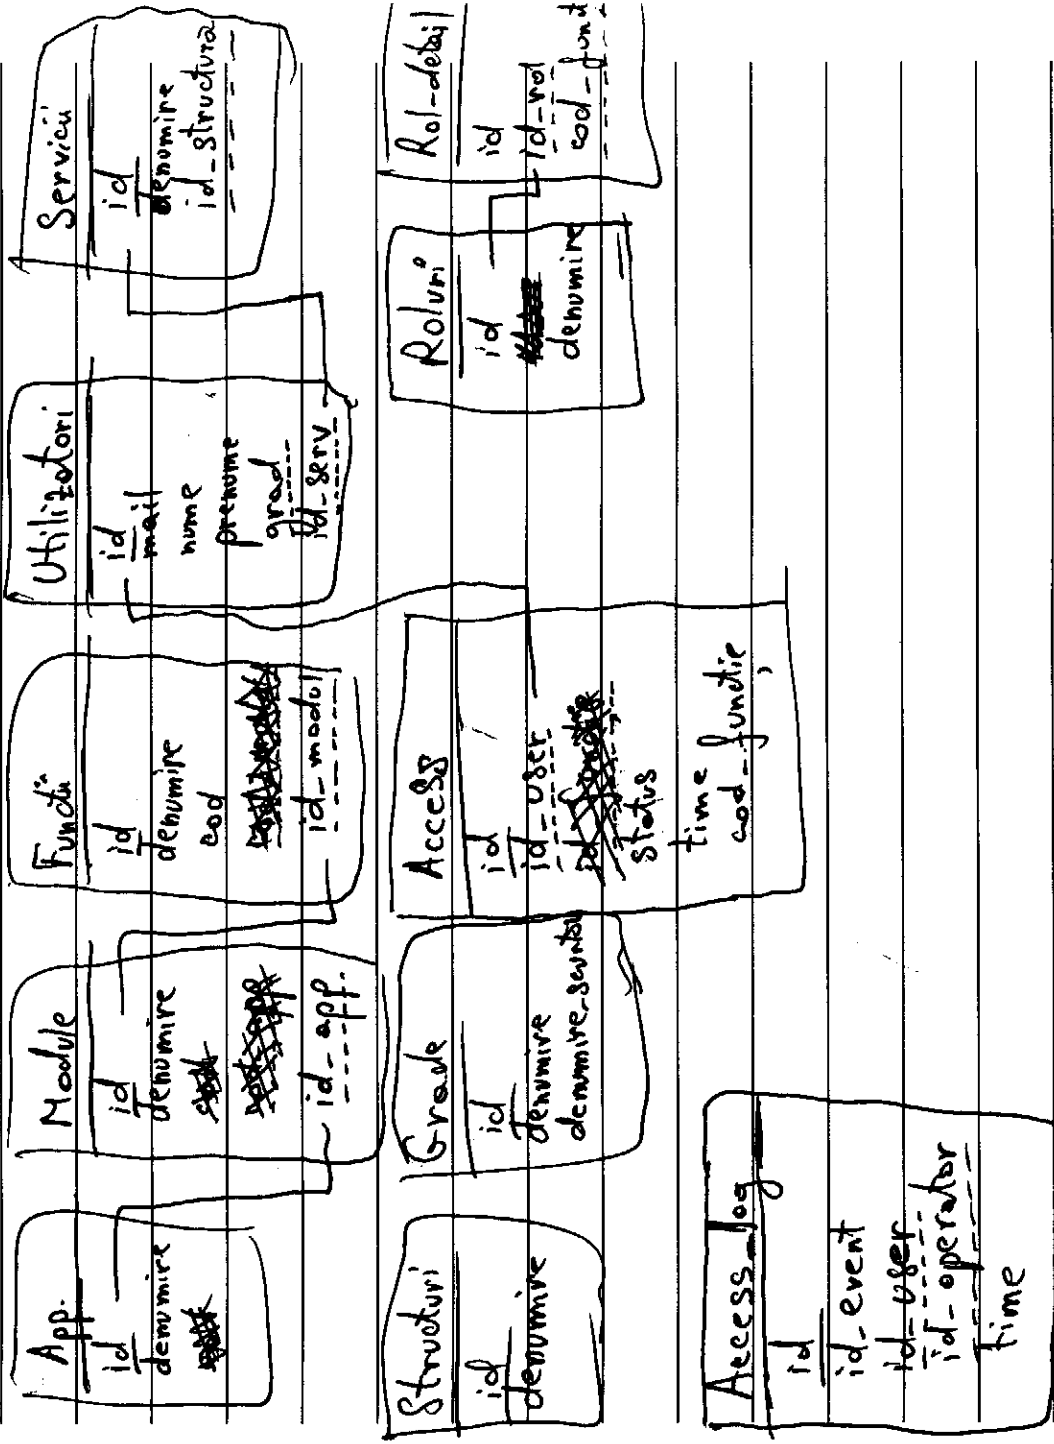 App.
id
denumire
Module
id
denumire
id_app.
Functii
id
denumire
cod
id_modul
Utilizatori
id
mail
nume
prenume
grad
id_serv
Servicii
id
denumire
id_structura
Structuri
id
denumire
Grade
id
denumire
Access
id
id_user
status
time
cod_functie
Roluri
id
denumire
Rol-detail
id
id_rol
cod_funct
Access_log
id
id_event
id_user
id_operator
time